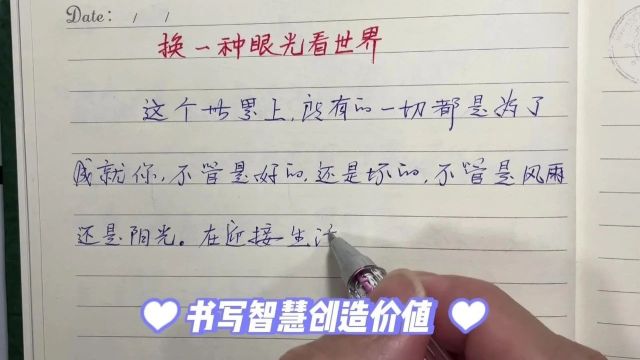 Date: / /
换一种眼光看世界
这个世界上,所有的一切都是为了
成就你,不管是好的,还是坏的,不管是风雨
还是阳光。在迎接生活
书写智慧创造价值